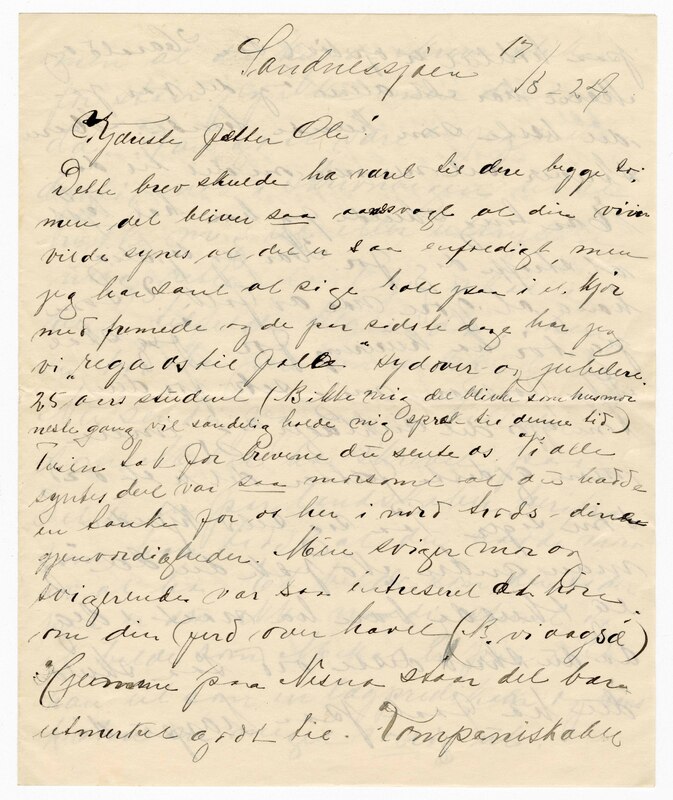 Sandnessjøen 17/8-24
Kjæreste fætter Ole!
Dette brev skulde ha været til dere begge to,
men det bliver saa at din viv
vilde synes at det er saa enfoldigt, men
jeg har sant at sige holt paa i et kjør
med fremede og de par sidste dage har jeg
vi "rega os til Jalle" sydover og jubelere.
25 aars student (B ikke mig det bliver som husmor
neste gang vil sandelig holde mig sprek til denne tid)
Tusen tak for brevene du sente os. Vi alle
syntes det var saa morsomt at du hadde
en tanke for os her i nord trods dine
gjenvordigheder. Min sviger mor og
svigerinder var saa intreseret at høre
om din ferd over havet (B. vi også)
Hjemme paa Nesna staar det bare
utmerket godt til. Kompaniskabet